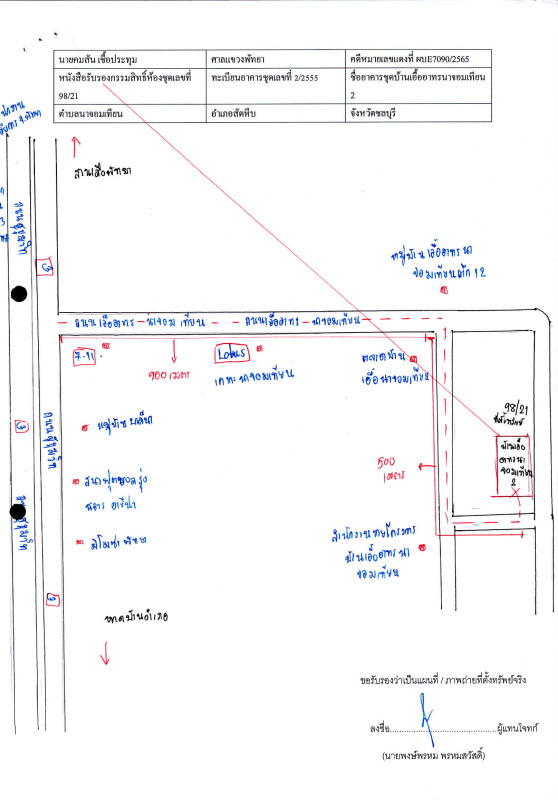 นายคมสัน เชื้อประทุม ศาลแขวงพัทยา คดีหมายเลขแดงที่ ผบE7090/2565
หนังสือรับรองกรรมสิทธิ์ห้องชุดเลขที่ 98/21 ทะเบียนอาคารชุดเลขที่ 2/2555 ชื่ออาคารชุดบ้านเอื้ออาทรนาจอมเทียน 2
ตำบลนาจอมเทียน อำเภอสัตหีบ จังหวัดชลบุรี
สวนเสือพัทยา
ถนนสุขุมวิท
3
หมู่บ้านเอื้ออาทรนา
จอมเทียนตึก 12
ถนนเอื้ออาทร-นาจอมเทียน ถนนเอื้ออาทร-นาจอมเทียน
7-11
900 เมตร
Lotus
เคหะนาจอมเทียน
ตลาดบ้าน
เอื้อนาจอมเทียน
98/21
ที่ตั้งทรัพย์
บ้านเอื้อ
อาทรนา
จอมเทียน
2
ถนนสุขุมวิท
3
500
เมตร
สนามฟุตบอลรุ่ง
มิโมซ่า พัทยา
สำนักงานขายโครงการ
บ้านเอื้ออาทรนา
จอมเทียน
ถนนสุขุมวิท
3
หาดบ้านอำเภอ
ขอรับรองว่าเป็นแผนที่ / ภาพถ่ายที่ตั้งทรัพย์จริง
ลงชื่อ........................................ผู้แทนโจทก์
(นายพงษ์พรหม พรหมสวัสดิ์)